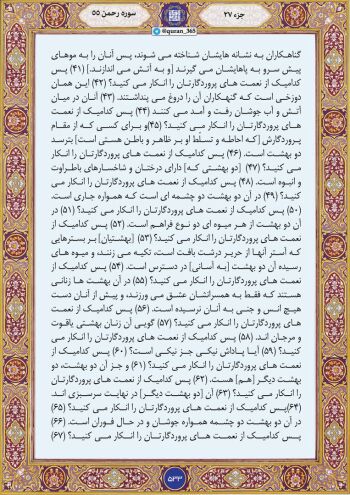 جزء ۲۷
سوره رحمن ۵۵
@quran_365
گناهکاران به نشانه هایشان شناخته می شوند، پس آنان را به موهای
پیش سر و به پاهایشان می گیرند [و به آتش می اندازند.] (۴۱) پس
کدامیک از نعمت های پروردگارتان را انکار می کنید؟ (۴۲) این همان
دوزخی است که گنهکاران آن را دروغ می پنداشتند. (۴۳) آنان در میان
آتش و آب جوشان رفت و آمد می کنند (۴۴) پس کدامیک از نعمت
های پروردگارتان را انکار می کنید؟ (۴۵)و برای کسی که از مقام
پروردگارش [که احاطه و تسلط او بر ظاهر و باطن هستی است] بترسد
دو بهشت است. (۴۶) پس کدامیک از نعمت های پروردگارتان را انکار
می کنید؟ (۴۷) [دو بهشتی که] دارای درختان و شاخسارهای باطراوت
و انبوه است. (۴۸) پس کدامیک از نعمت های پروردگارتان را انکار می
کنید؟ (۴۹) در آن دو بهشت دو چشمه ای است که همواره جاری است.
(۵۰) پس کدامیک از نعمت های پروردگارتان را انکار می کنید؟ (۵۱) در
آن دو بهشت از هر میوه ای دو نوع فراهم است. (۵۲) پس کدامیک از
نعمت های پروردگارتان را انکار می کنید؟ (۵۳) [بهشتیان] بر بسترهایی
که آستر آنها از حریر درشت بافت است، تکیه می زنند و میوه های
رسیده آن دو بهشت [به آسانی] در دسترس است. (۵۴) پس کدامیک از
نعمت های پروردگارتان را انکار می کنید؟ (۵۵) در آن بهشت ها زنانی
هستند که فقط به همسرانشان عشق می ورزند، و پیش از آنان دست
هیچ انس و جنی به آنان نرسیده است. (۵۶) پس کدامیک از نعمت
های پروردگارتان را انکار می کنید؟ (۵۷) گویی آن زنان بهشتی یاقوت
و مرجان اند. (۵۸) پس کدامیک از نعمت های پروردگارتان را انکار می
کنید؟ (۵۹) آیا پاداش نیکی جز نیکی است؟ (۶۰) پس کدامیک از
نعمت های پروردگارتان را انکار می کنید؟ (۶۱) و جز آن دو بهشت، دو
بهشت دیگر [هم] هست. (۶۲) پس کدامیک از نعمت های پروردگارتان
را انکار می کنید؟ (۶۳) آن [دو بهشت دیگر] در نهایت سرسبزی اند.
(۶۴)پس کدامیک از نعمت های پروردگارتان را انکار می کنید؟ (۶۵)
در آن دو بهشت دو چشمه همواره جوشان و در حال فوران است. (۶۶)
پس کدامیک از نعمت های پروردگارتان را انکار می کنید؟ (۶۷)
۵۳۳